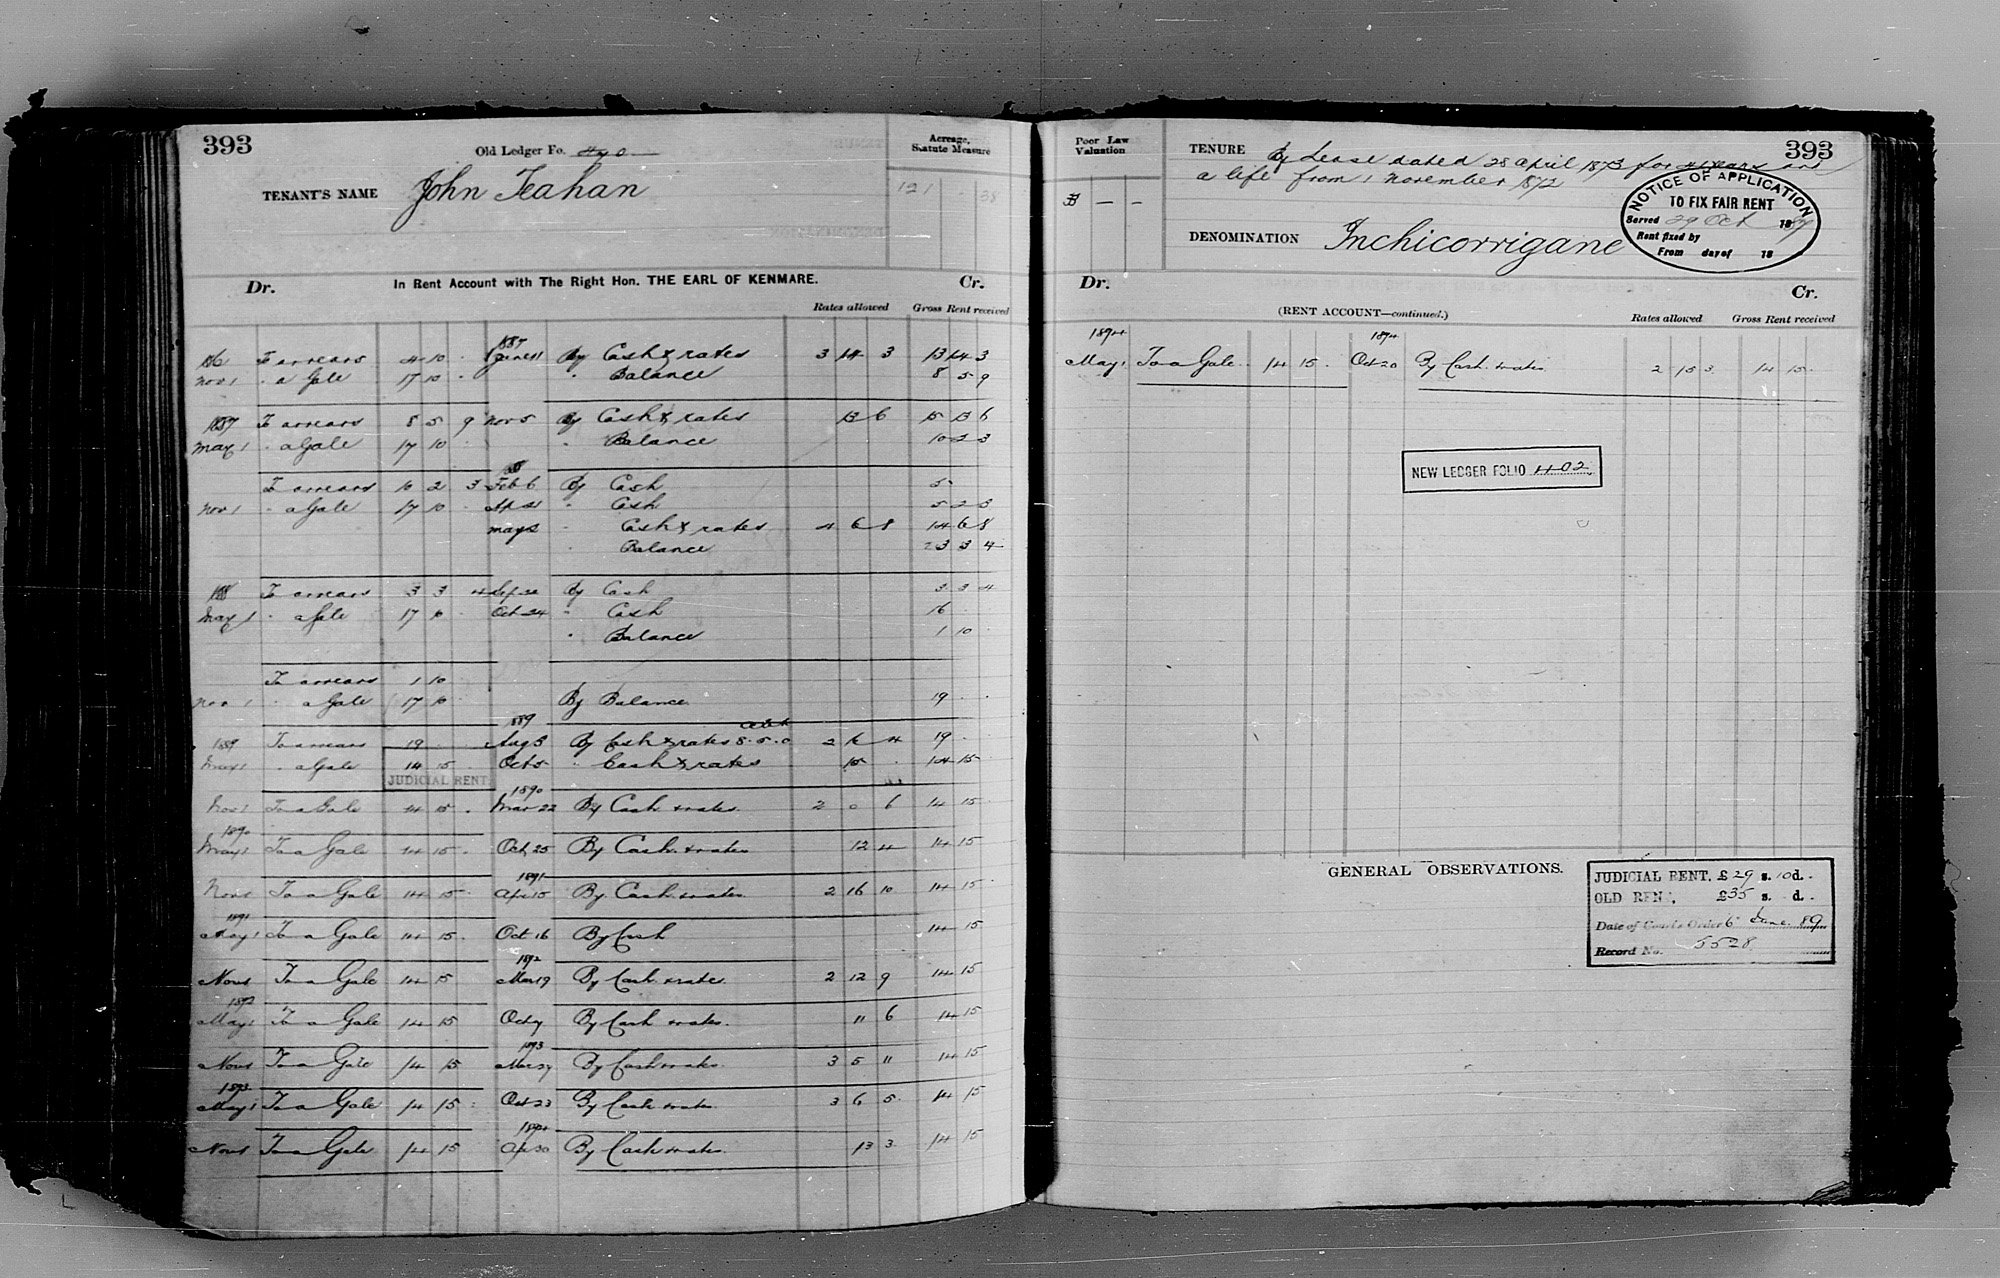 393
Old Ledger Fo.
TENANT'S NAME John Teahan
Acreage, Statute Measure
121 38
Dr. In Rent Account with The Right Hon. THE EARL OF KENMARE. Cr.
Rates allowed Gross Rent received
1887
To arrears 4 10 . June 11 By Cash & rates 3 14 3 13 14 3
Nov 1 " a Gale 17 10 . " Balance 8 5 9
1887 To arrears 8 5 9 Nov 5 By Cash & rates 13 6 15 13 6
May 1 " a Gale 17 10 . " Balance 10 2 3
To arrears 10 2 3 Feb 6 By Cash 5
Nov 1 " a Gale 17 10 . Ap 21 " Cash 5 2 3
May 2 " Cash & rates 4 6 8 14 6 8
" Balance 3 3 4
188 To arrears 3 3 4 Sep 22 By Cash 3 3 4
May 1 " a Gale 17 10 Oct 24 " Cash 16
" Balance 1 10
To arrears 1 10
Nov 1 " a Gale 17 10 By Balance 19
1889
1889 To arrears 19 Aug 3 By Cash & rates 8.5.0 2 4 19
May 1 " a Gale 14 15 Oct 5 " Cash & rates 15 14 15
JUDICIAL RENT
1890
Nov 1 To a Gale 14 15 . Mar 22 By Cash & rates 2 0 6 14 15
1890
May 1 To a Gale 14 15 . Oct 25 By Cash & rates 12 4 14 15
1891
Nov 1 To a Gale 14 15 . Apr 15 By Cash & rates 2 16 10 14 15
1891
May 1 To a Gale 14 15 . Oct 16 By Cash 14 15
1892
Nov 1 To a Gale 14 15 Mar 19 By Cash & rates 2 12 9 14 15
1892
May 1 To a Gale 14 15 Oct 7 By Cash & rates 11 6 14 15
1893
Nov 1 To a Gale 14 15 Mar 27 By Cash & rates 3 5 11 14 15
1893
May 1 To a Gale 14 15 Oct 23 By Cash & rates 3 6 5 14 15
1894
Nov 1 To a Gale 14 15 Ap 30 By Cash & rates 13 3 14 15
Poor Law Valuation
13 — —
TENURE By Lease dated 28 April 1873 for 21 years and
393
a life from 1 November 1872
NOTICE OF APPLICATION
TO FIX FAIR RENT
Served 29 Oct 1887
Rent fixed by
From day of 18
DENOMINATION Inchicorrigane
Dr. Cr.
(RENT ACCOUNT—continued.)
Rates allowed Gross Rent received
1894 1894
May 1 To a Gale 14 15 . Oct 20 By Cash & rates 2 15 3 14 15 .
NEW LEDGER FOLIO 402
GENERAL OBSERVATIONS.
JUDICIAL RENT, £29 s. 10 d.
OLD RENT, £35 s. d.
Date of Court's Order 6 June 89
Record No. 5528